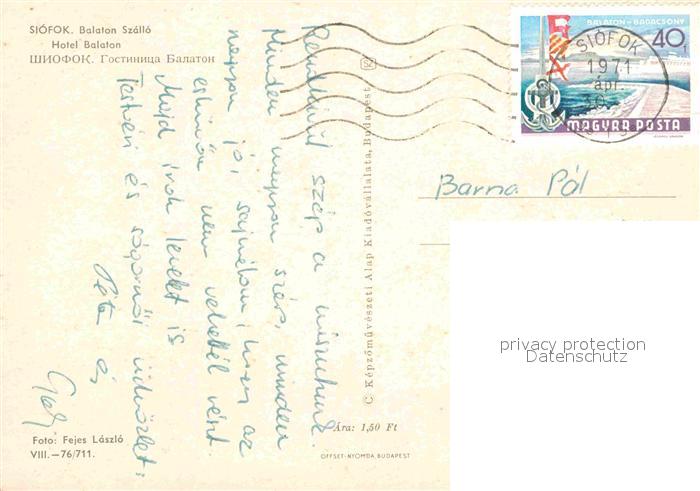 SIÓFOK. Balaton Szálló
Hotel Balaton
ШИОФОК. Гостиница Балатон
BALATON - BADACSONY
40 f
SIÓFOK
1971
ápr.
MAGYAR POSTA
Barna Pál
privacy protection
Datenschutz
Rendkívül szép a
Minden nagyon szép, minden
nagyon jó, sajnálom, hogy az
esküvőn nem vehettél részt.
Majd írok levelet is
Testvéri és sógornői üdvözlet:
és
© Képzőművészeti Alap Kiadóvállalata, Budapest
Ára: 1,50 Ft
Foto: Fejes László
VIII.—76/711.
OFFSET-NYOMDA, BUDAPEST